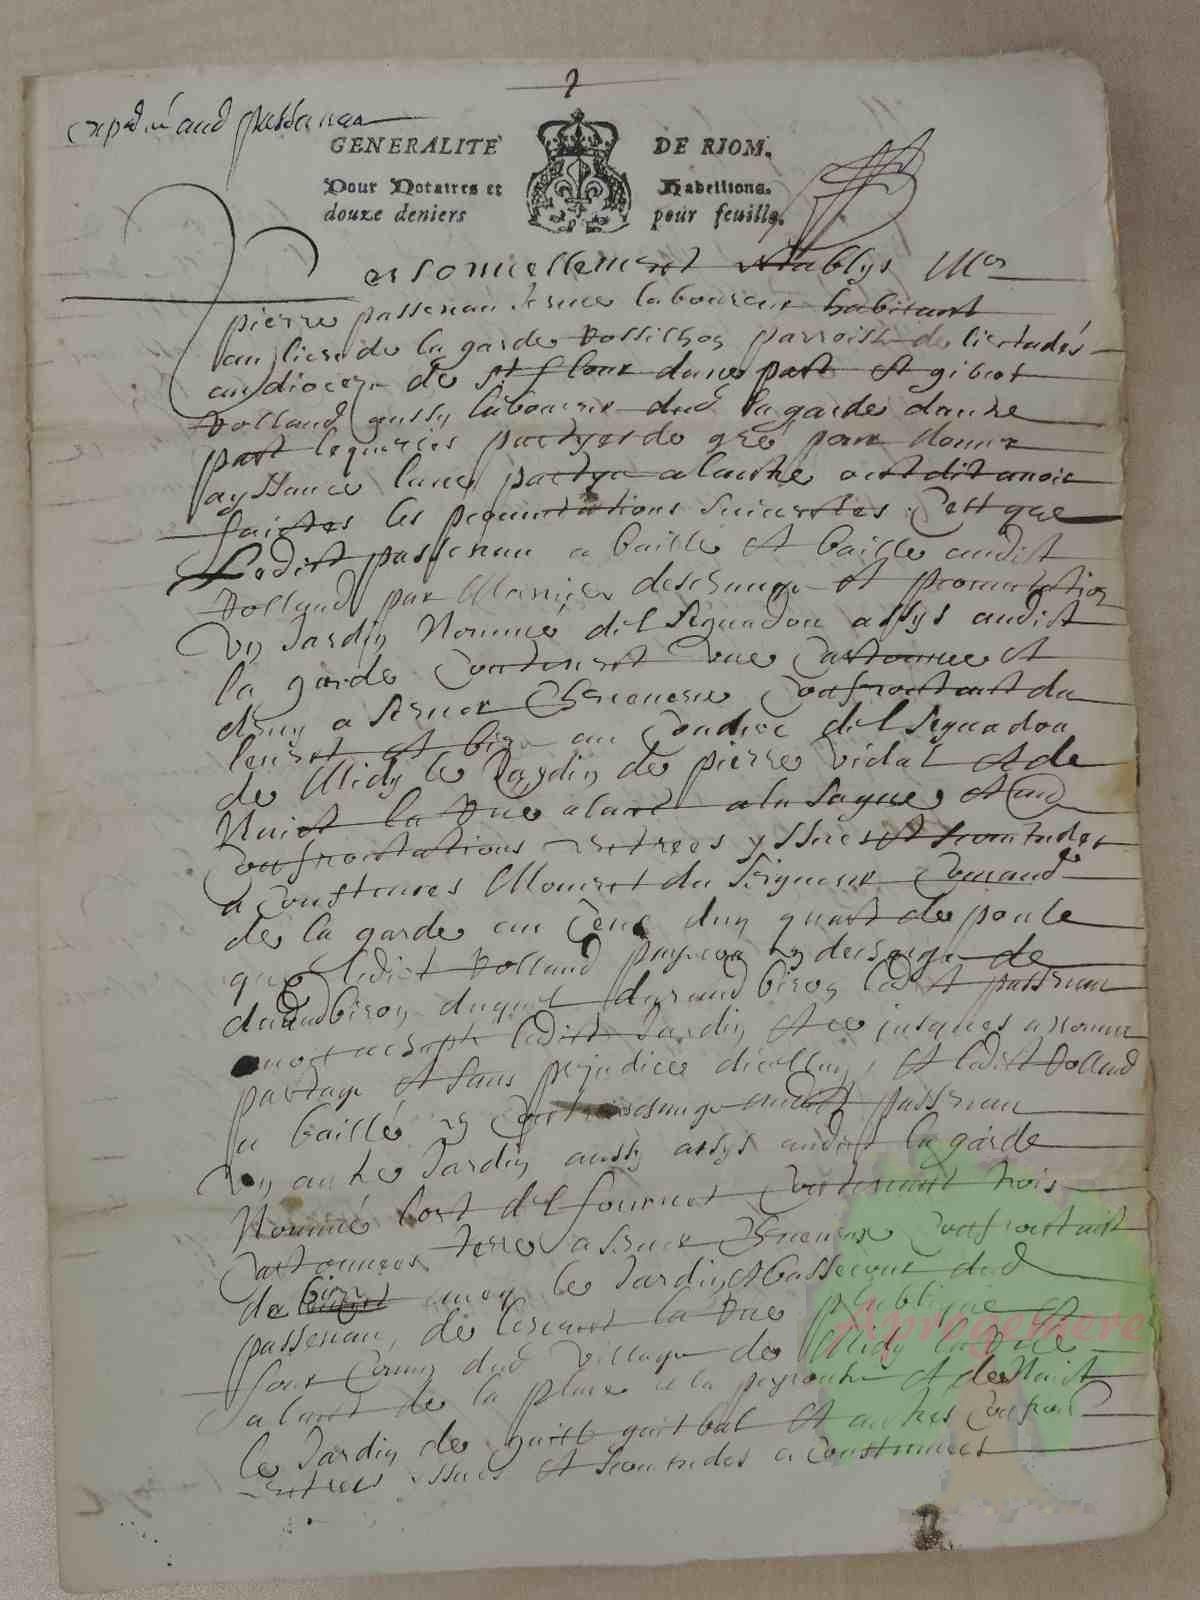 2
expedié aud passenau
GENERALITÉ DE RIOM.
Pour Notaires et Tabellions.
douze deniers pour feuille.
Personnellement establys Mes
pierre passenau laboureur habitant
au lieu de la garde parroisse de lieutadés
au dioceze de st flour dune part et gibert
Volland aussy laboureur dud la garde dautre
part lequelles partyes de gré pour donner
ayssance lune partye a lautre ont dit avoir
faictes les permutations suivantes Cest que
Ledict passenau a baillé et baille audict
Volland par Maniere deschange et permutation
Un Jardin Nommé del Seguadou assys audict
la garde Contenant une Cartonnee et
demy a semer Cheneveux Confrontant du
levant et bize au Coudert del Seguadou
de Midy le Jardin de pierre vidal et de
Nuict la Rue alant a la Sagne et aud
Confrontations entrees yssues et servitudes
a Coustumes Mouvant du Seigneur
de la garde au Cens dun quart de poule
que ledict Volland payera en descharge de
durand biron duquel durand biron ledict passenau
avoit ledict Jardin et ce jusques a
partage et sans prejudice dicelluy, et ledict Volland
a baillé en Contreschange audict passenau
Un autre Jardin aussy assys audict la garde
Nommé lort del fournet Contenant trois
Cartonnees terre a semer Cheneveux Confrontant
de bize le Jardin et bassecour dud
passenau, de levant la Rue publique et
four Comun dud Village de Midy la Rue
alant de la place a la peyrouse et de Nuict
le Jardin de et autres Confron
entrees yssues et servitudes a Coustumees
Aprogemere